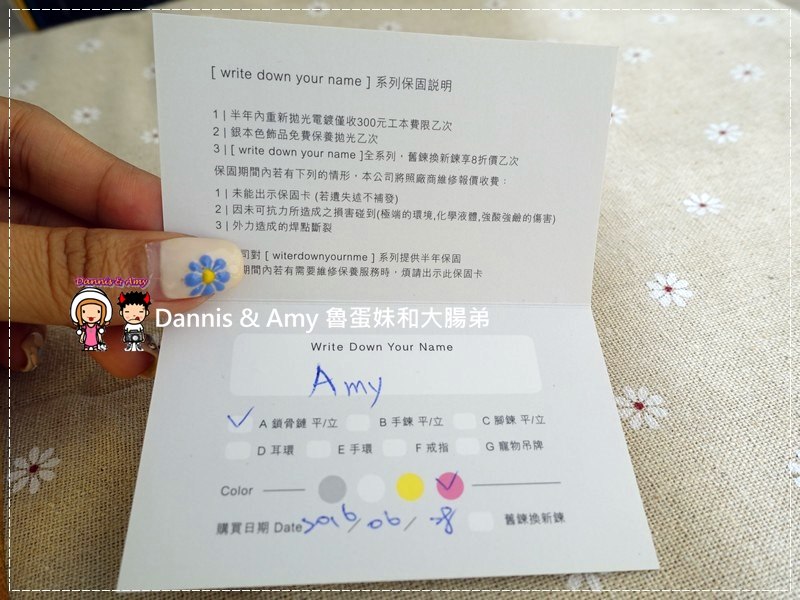 [ write down your name ] 系列保固説明
1 | 半年內重新拋光電鍍僅收300元工本費限乙次
2 | 銀本色飾品免費保養拋光乙次
3 | [ write down your name ]全系列，舊鍊換新鍊享8折價乙次
保固期間內若有下列的情形，本公司將照廠商維修報價收費：
1 | 未能出示保固卡 (若遺失述不補發)
2 | 因未可抗力所造成之損害碰到(極端的環境,化學液體,強酸強鹼的傷害)
3 | 外力造成的焊點斷裂
司對 [ witerdownyournme ] 系列提供半年保固
期間內若有需要維修保養服務時，煩請出示此保固卡
Dannis & Amy
Dannis & Amy 魯蛋妹和大腸弟
Write Down Your Name
Amy
A 鎖骨鏈 平/立 B 手鍊 平/立 C 腳鍊 平/立
D 耳環 E 手環 F 戒指 G 寵物吊牌
Color
購買日期 Date 2016/06/ 舊鍊換新鍊